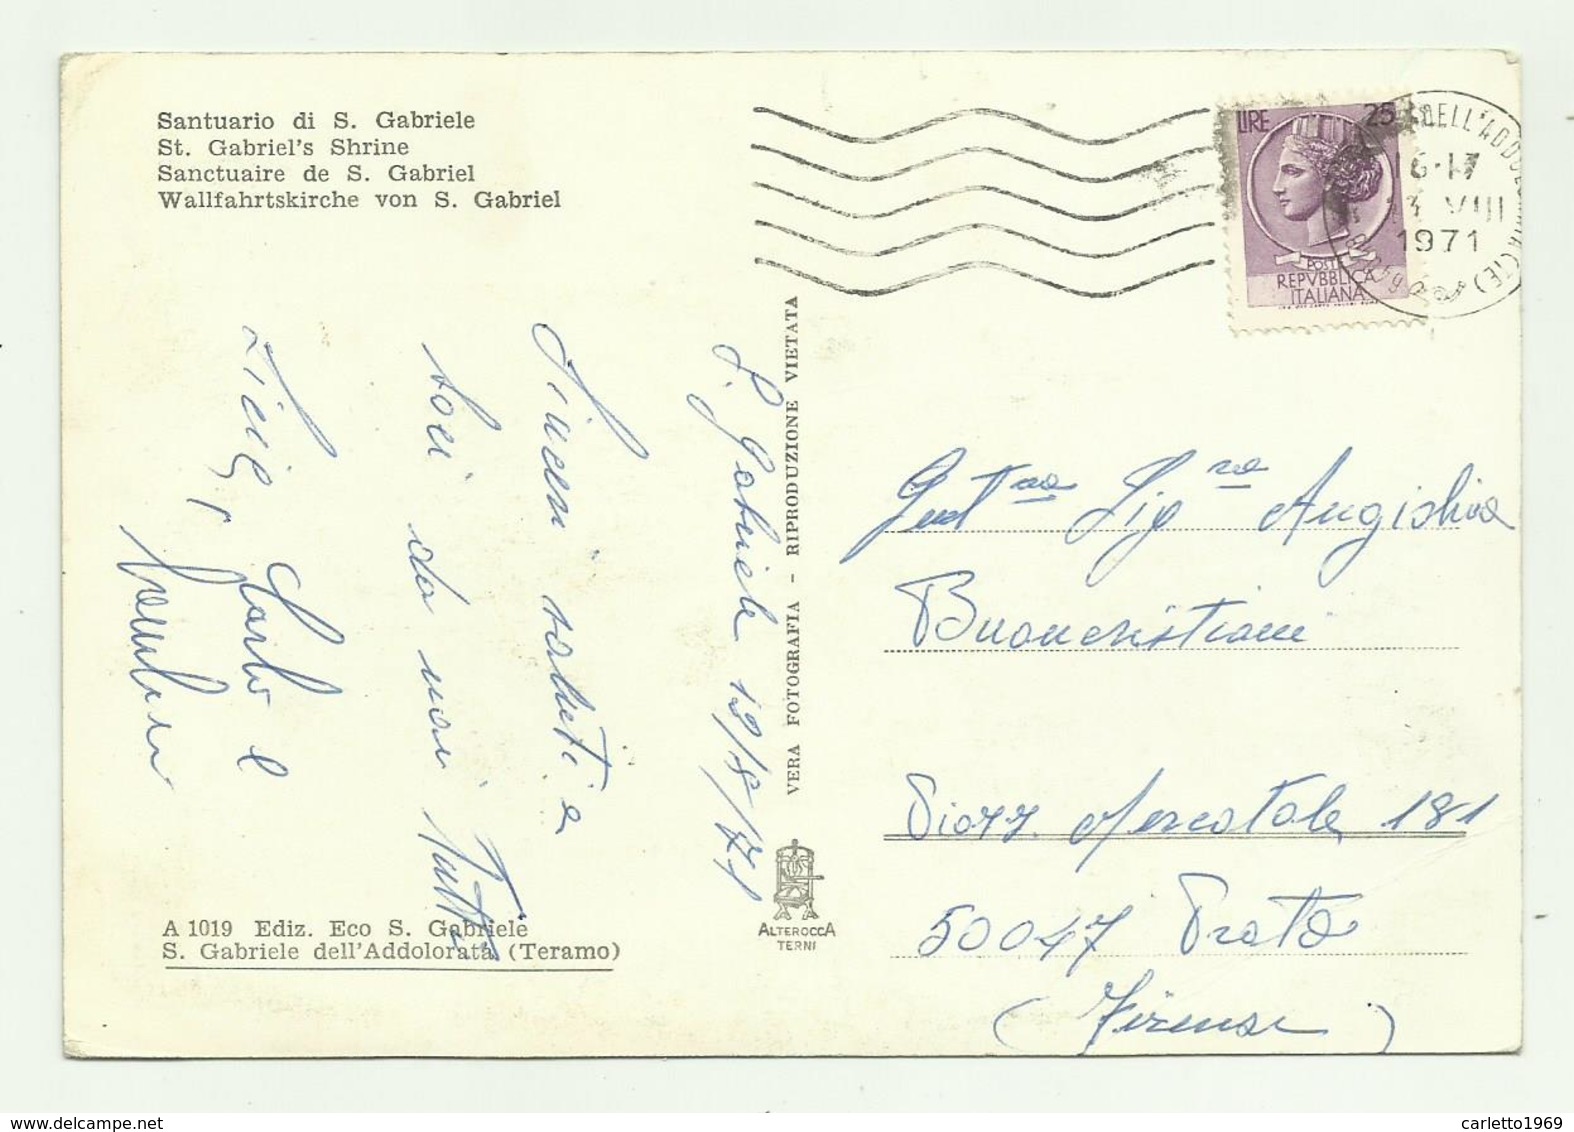 Santuario di S. Gabriele
St. Gabriel's Shrine
Sanctuaire de S. Gabriel
Wallfahrtskirche von S. Gabriel
LIRE 25
POSTE
REPVBBLICA
ITALIANA
DELL'ADDOLORATA (TE)
16-17
13 VIII
1971
S. Gabriele 13/8/71
Sinceri saluti a
voi da noi tutti
Luigi, Carlo e
A 1019 Ediz. Eco S. Gabriele
S. Gabriele dell'Addolorata (Teramo)
VERA FOTOGRAFIA - RIPRODUZIONE VIETATA
ALTEROCCA
TERNI
Gent.ma Sig.ra Angiolina
Buoncristiani
Piazz. Mercatale 181
50047 Prato
(Firenze)
carletto1969